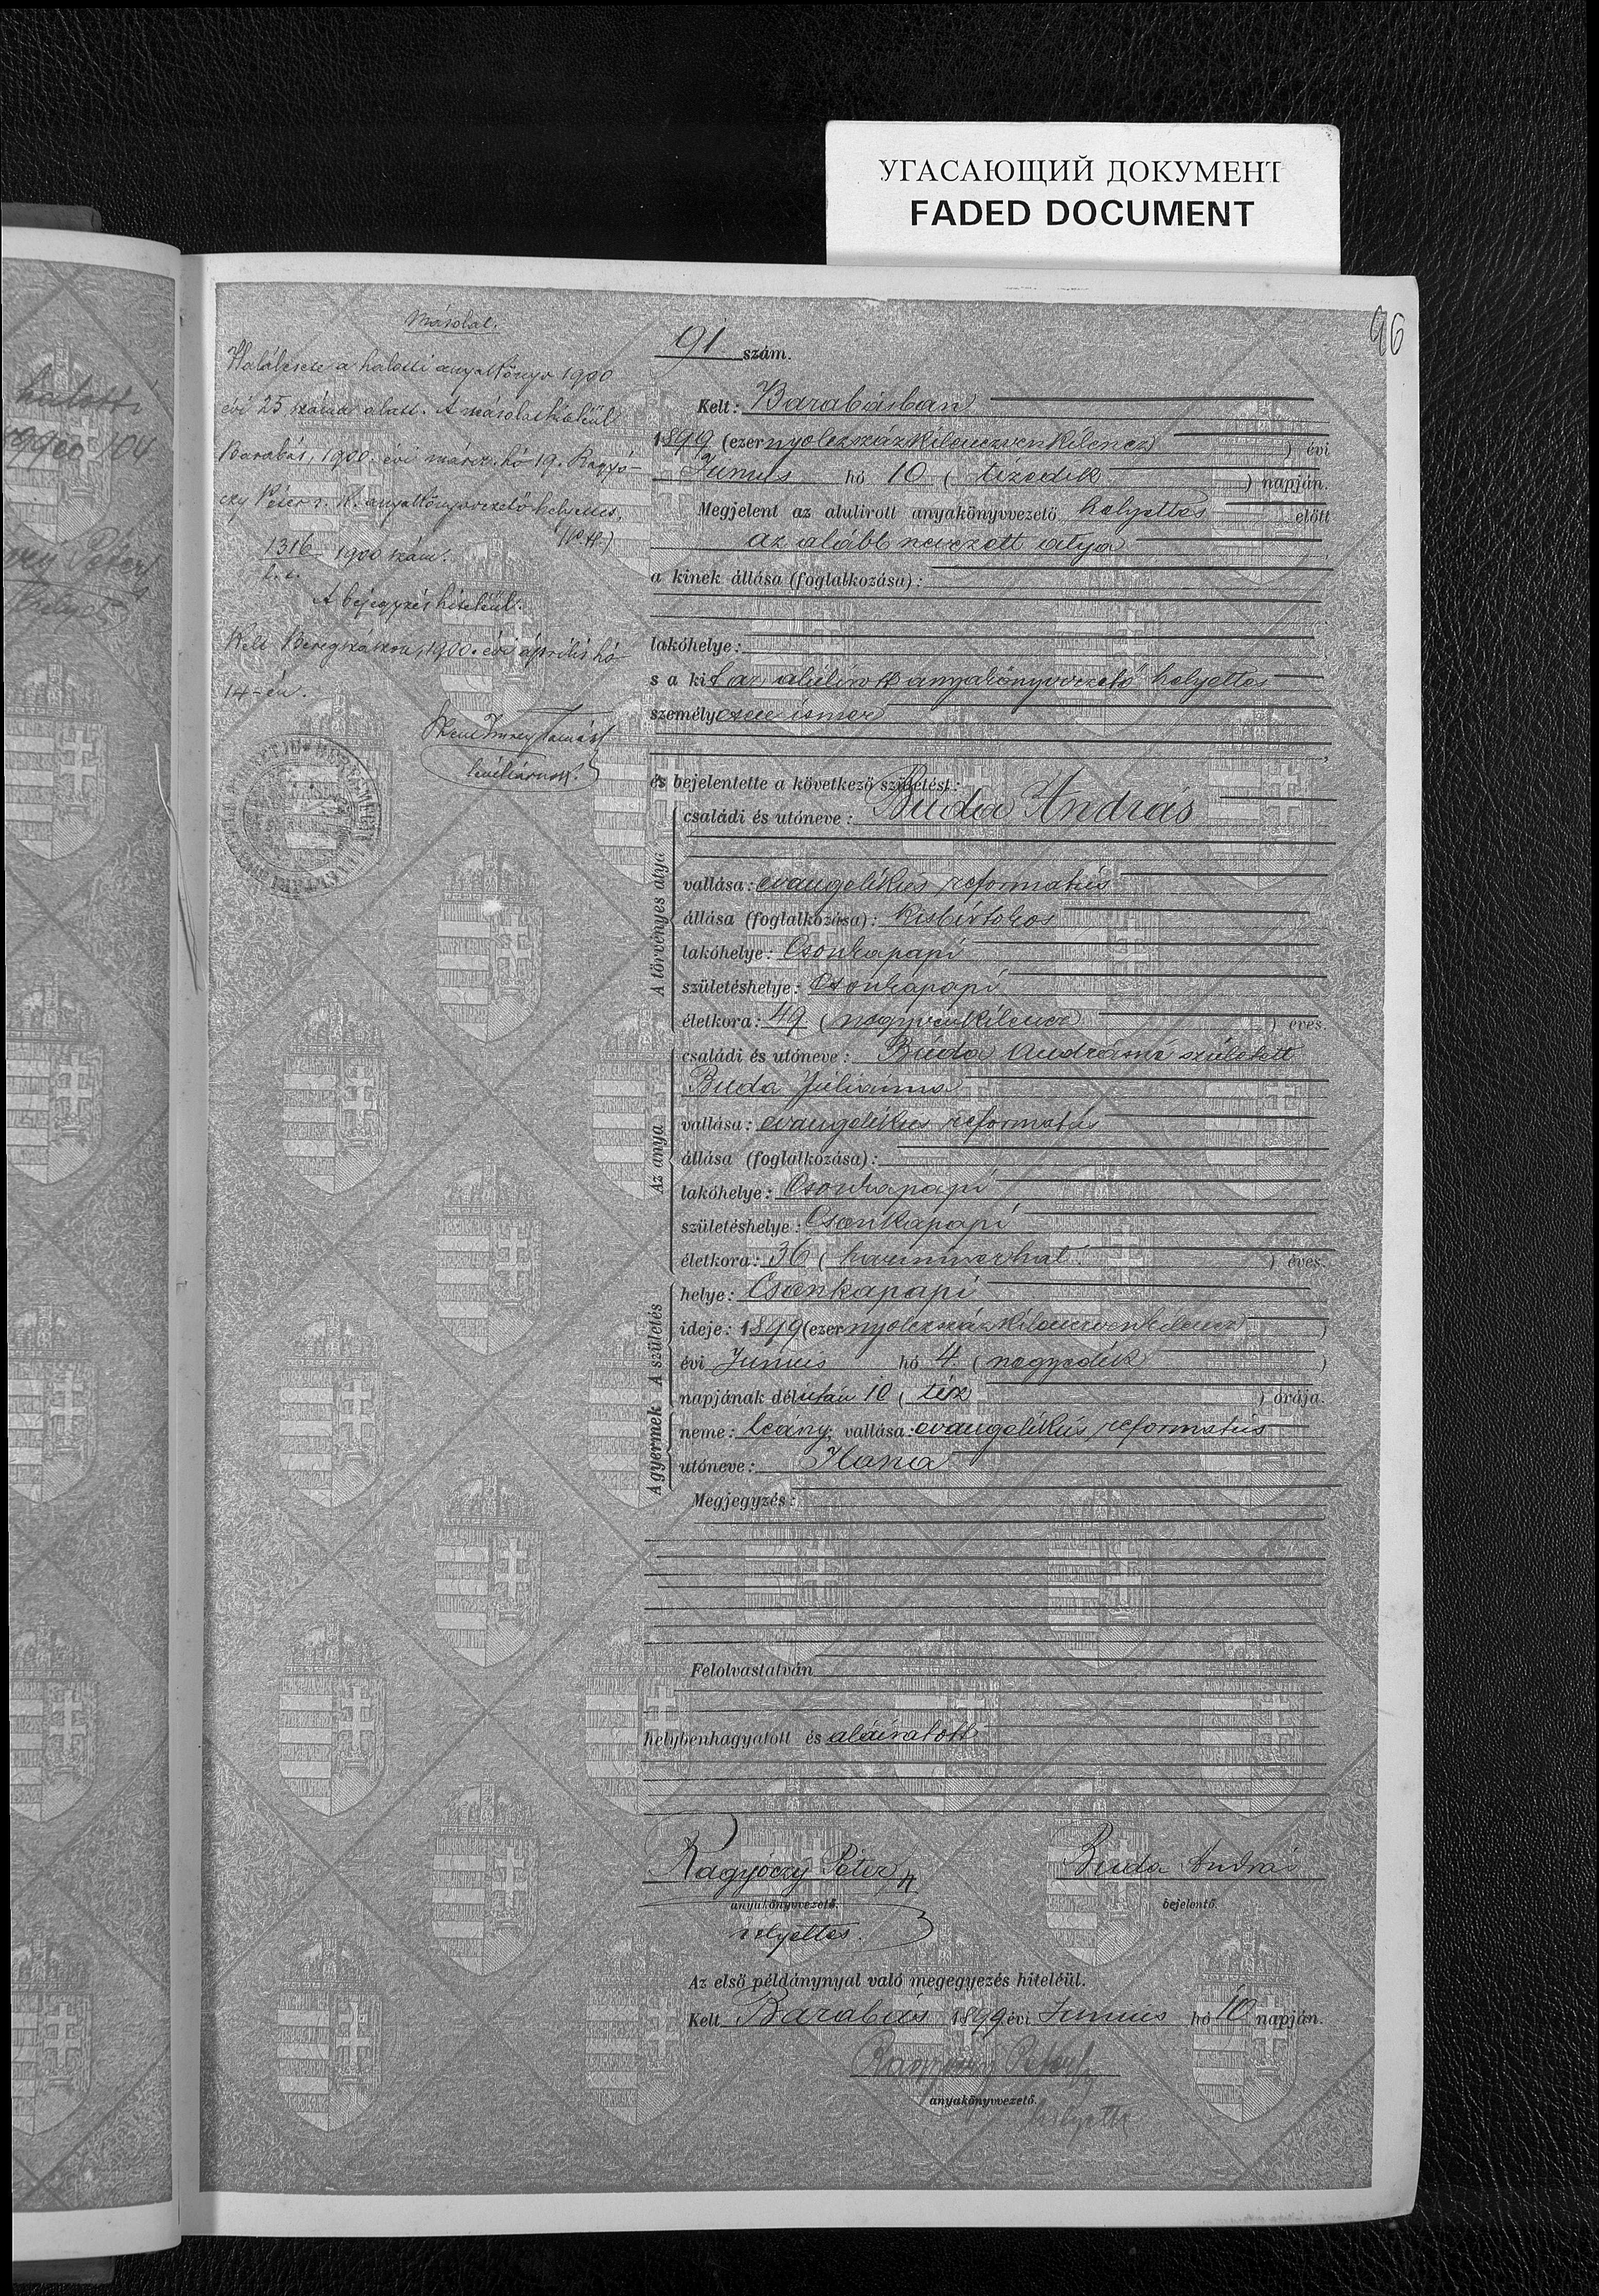 УГАСАЮЩИЙ ДОКУМЕНТ
FADED DOCUMENT
96
halotti
104
Péter
Másolat.
Halálesete a halotti anyakönyv 1900
évi 25 száma alatt. A másolat hiteléül
Barabás, 1900. évi márcz. hó 19. Ragyó-
czy Péter s. k. anyakönyvvezető helyettes.
(P. H.)
1316 1900 szám.
A bejegyzés hiteléül.
Kelt Beregszászon, 1900. évi április hó
14-én.
levéltárnok.
91 szám.
Kelt: Barabásban
1899 (ezernyolczszázkilenczvenkilencz) évi
Junius hó 10 (tizedik) napján.
Megjelent az alulirott anyakönyvvezető helyettes előtt
az alább nevezett atya
a kinek állása (foglalkozása):
lakóhelye:
s a kit az alulirott anyakönyvvezető helyettes
személyesen ismer
és bejelentette a következő születést:
A törvényes atya
családi és utóneve: Buda András
vallása: evangélikus református
állása (foglalkozása): kisbirtokos
lakóhelye: Csonkapapi
születéshelye: Csonkapapi
életkora: 49 (negyvenkilencz) éves.
Az anya
családi és utóneve: Buda Andrásné született
Buda Juliánna
vallása: evangélikus református
állása (foglalkozása):
lakóhelye: Csonkapapi
születéshelye: Csonkapapi
életkora: 36 (harminczhat) éves.
A születés
helye: Csonkapapi
ideje: 1899 (ezernyolczszázkilenczvenkilencz)
évi Junius hó 4. (negyedik)
napjának délután 10 (tiz) órája.
A gyermek
neme: leány; vallása: evangélikus református
utóneve: Ilona
Megjegyzés:
Felolvastatván
helybenhagyatott és aláiratott
Ragyóczy Péter Buda András
anyakönyvvezető. bejelentő.
helyettes.
Az első példánynyal való megegyezés hiteléül.
Kelt Barabás 1899 évi Junius hó 10 napján.
Ragyóczy Péter
anyakönyvvezető.
helyettes